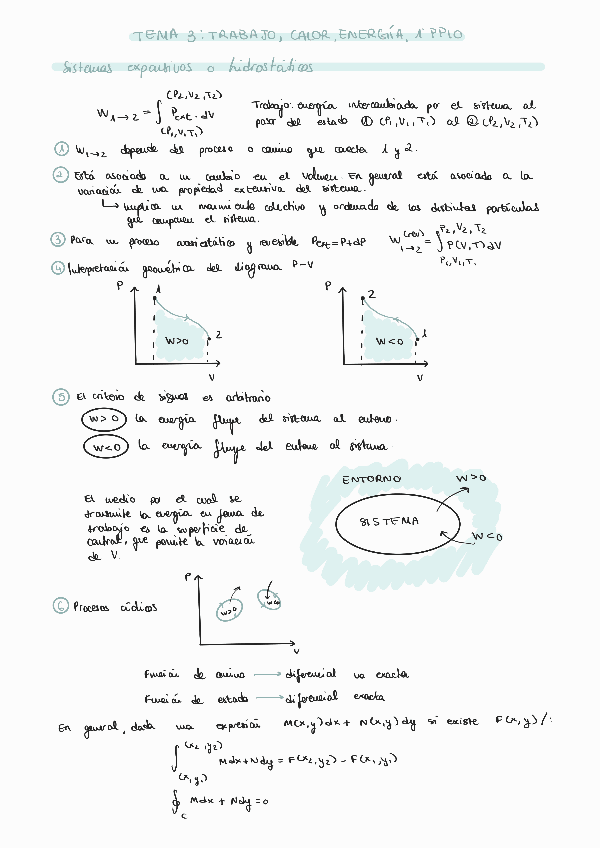 TEMA 3: TRABAJO, CALOR, ENERGÍA, 1er PPIO
Sistemas expansivos o hidrostáticos
W1→2 = ∫(P1,V1,T1)(P2,V2,T2) Pext · dV
Trabajo: energía intercambiada por el sistema al
pasar del estado ① (P1,V1,T1) al ② (P2,V2,T2)
① W1→2 depende del proceso o camino que conecta 1 y 2.
② Está asociado a un cambio en el volumen. En general está asociado a la
variación de una propiedad extensiva del sistema.
↳ implica un movimiento colectivo y ordenado de las distintas partículas
que componen el sistema.
③ Para un proceso cuasiestático y reversible Pext = P+dP W1→2(rev) = ∫P1,V1,T1P2,V2,T2 P(V,T) dV
④ Interpretación geométrica del diagrama P-V
P 1 2 W>0 V
P 2 1 W<0 V
⑤ El criterio de signos es arbitrario
W>0 la energía fluye del sistema al entorno.
W<0 la energía fluye del entorno al sistema.
ENTORNO W>0
SISTEMA
W<0
El medio por el cual se
transmite la energía en forma de
trabajo es la superficie de
control, que permite la variación
de V.
⑥ Procesos cíclicos
P W>0 W<0 V
Función de camino → diferencial no exacta
Función de estado → diferencial exacta
En general, dada una expresión M(x,y)dx + N(x,y)dy si existe F(x,y) /:
∫(x1,y1)(x2,y2) Mdx+Ndy = F(x2,y2) - F(x1,y1)
∮C Mdx + Ndy = 0